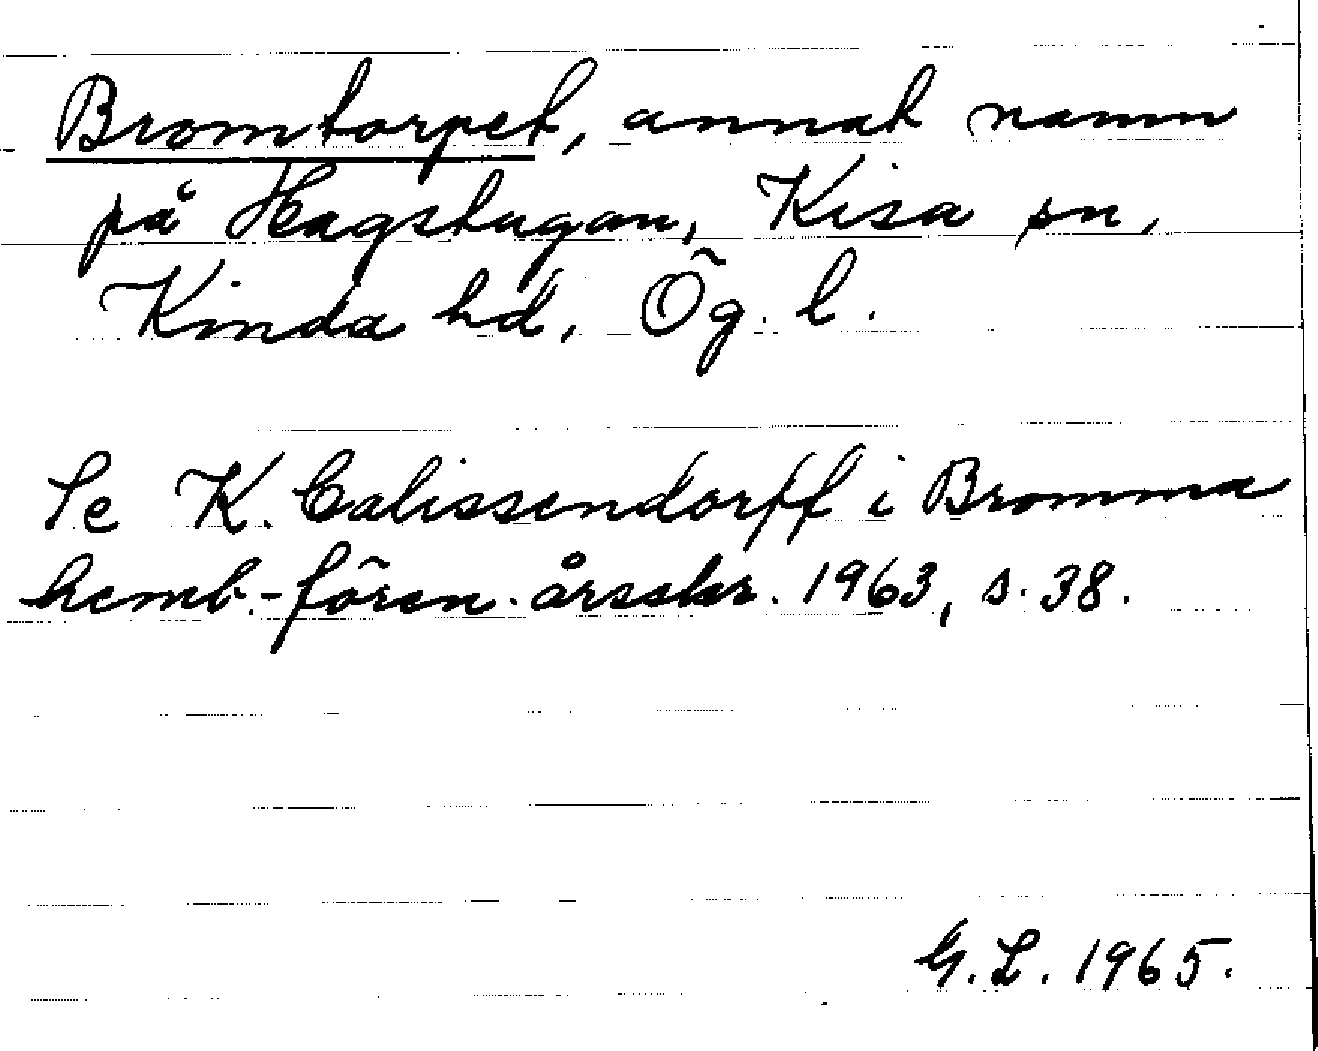 Bromtorpet, annat namn
på Hagstugan, Kisa sn,
Kinda hd, Ög. l.
Se K. Calissendorff i Bromma
hemb.-fören. årsskr. 1963, s. 38.
G. L. 1965.